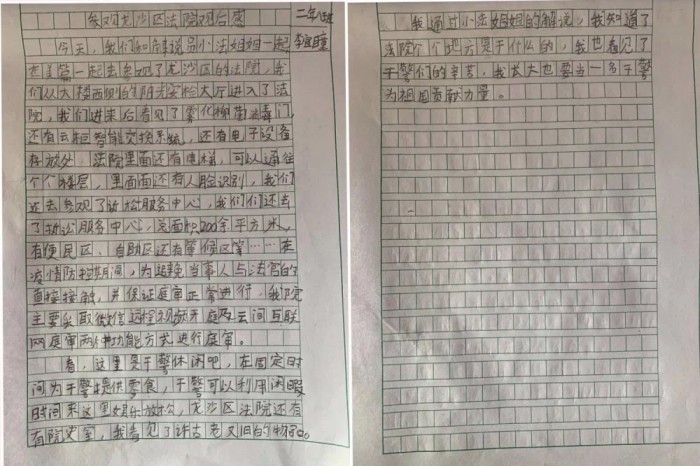 参观龙沙区法院观后感
二年八班
李宜瞳
今天，我们和解说员小法姐姐一起
去参观了龙沙区的法院，我
们从大楼西侧的阳光安检大厅进入了法
院，我们进来后看见了雾化抑菌消毒门，
还有云柜智能交换系统，还有电子设备
存放处。法院里面还有电梯，可以通往
个个楼层，里面还有人脸识别，我们
还去参观了诉讼服务中心，我们们还去
了诉讼服务中心，总面积200余平方米，
有便民区、自助区还有等候区等……在
疫情防控期间，为避免当事人与法官的
直接接触，并保证庭审正常进行，我院
主要采取微信远程视频开庭及云间互联
网庭审两种功能方式进行庭审。
看，这里是干警休闲吧，在固定时
间为干警提供零食，干警可以利用闲暇
时间来这里娱乐放松，龙沙区法院还有
有院史室，我看见了许古老又旧的物品。
我通过小法姐姐的解说，我知道了
法院个个地方是干什么的，我也看见了
干警们的辛苦，我长大也要当一名干警
为祖国贡献力量。